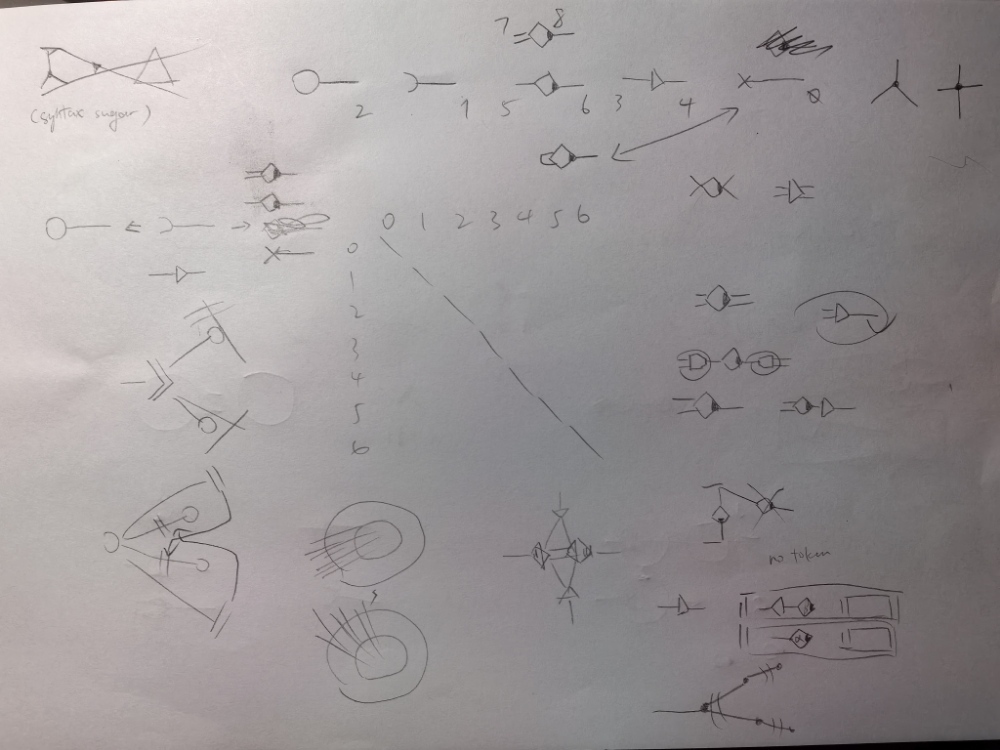 7 8
(syntax sugar)
2 1 5 6 3 4 0
0 1 2 3 4 5 6
0
1
2
3
4
5
6
no token
α